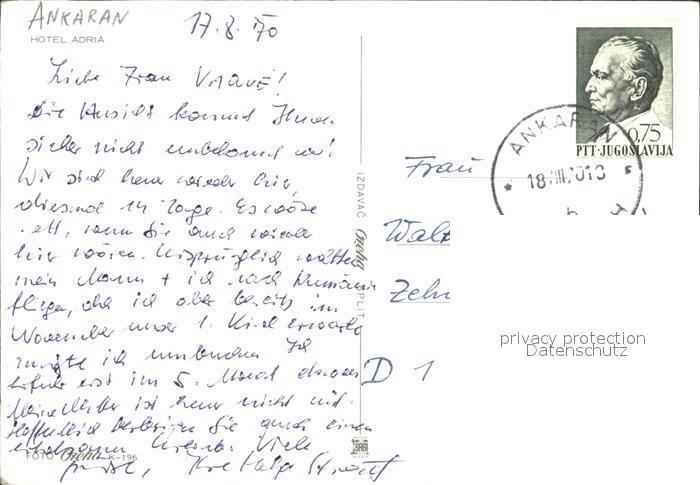 ANKARAN
HOTEL ADRIA
17.8.70
Liebe Frau
die Ansicht kommt Ihnen
sicher nicht unbekannt vor!
Wir sind heuer wieder hier,
diesmal 14 Tage. Es wäre
nett, wenn Sie auch wieder
hier wären. Ursprünglich wollten
mein Mann + ich nach Rumänien
fliegen, da ich aber bereits im
November unser 1. Kind erwarte
mußte ich umbuchen. Ich
erfuhr erst im 5. Monat davon
Meine Mutter ist heuer nicht mit.
Hoffentlich verbringen Sie auch einen
erholsamen Urlaub. Viele
Grüße, Ihre Helga
FOTO K-196
IZDAVAČ SPLIT
0,75
PTT·JUGOSLAVIJA
ANKARAN
Frau
Walz
Zehn
D 1
privacy protection
Datenschutz